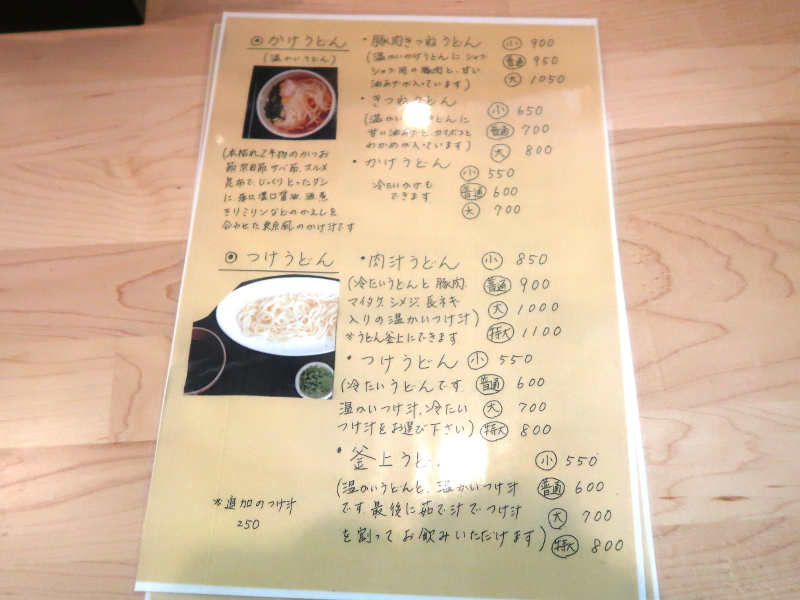 ◉ かけうどん
(温かいうどん)
(本枯れ2年物のかつお
節、宗田節、サバ節、スルメ
昆布で、じっくりとったダシ
に、薄口、濃口醤油、酒、煮
きりミリンなどのかえしを
合わせた東京風のかけ汁です
・豚肉きつねうどん 小 900
(温かいかけうどんに シャブ 普通 950
シャブ用の豚肉と、甘い 大 1050
油あげが入っています)
・きつねうどん 小 650
(温かい うどんに 普通 700
甘い油あげと、カマボコと 大 800
わかめが入っています)
・かけうどん 小 550
冷たいかけも 普通 600
できます 大 700
◉ つけうどん
・肉汁うどん 小 850
(冷たいうどんと 豚肉、 普通 900
マイタケ、シメジ、長ネギ 大 1000
入りの温かいつけ汁) 特大 1100
※うどん釜上にできます
・つけうどん 小 550
(冷たいうどんです 普通 600
温かいつけ汁、冷たい 大 700
つけ汁をお選び下さい) 特大 800
・釜上うどん 小 550
(温かいうどんと、温かいつけ汁 普通 600
です。最後に茹で汁でつけ汁 大 700
を割って お飲みいただけます) 特大 800
※追加のつけ汁
250